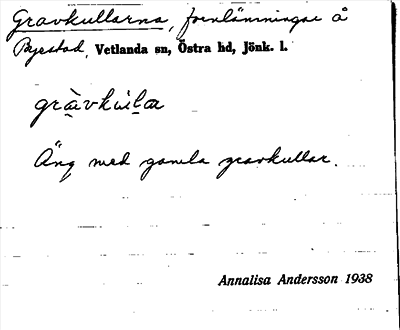 Gravkullarna, fornlämningar å
Byestad, Vetlanda sn, Östra hd, Jönk. l.
gràvku̇lar
Äng med gamla gravkullar.
Annalisa Andersson 1938